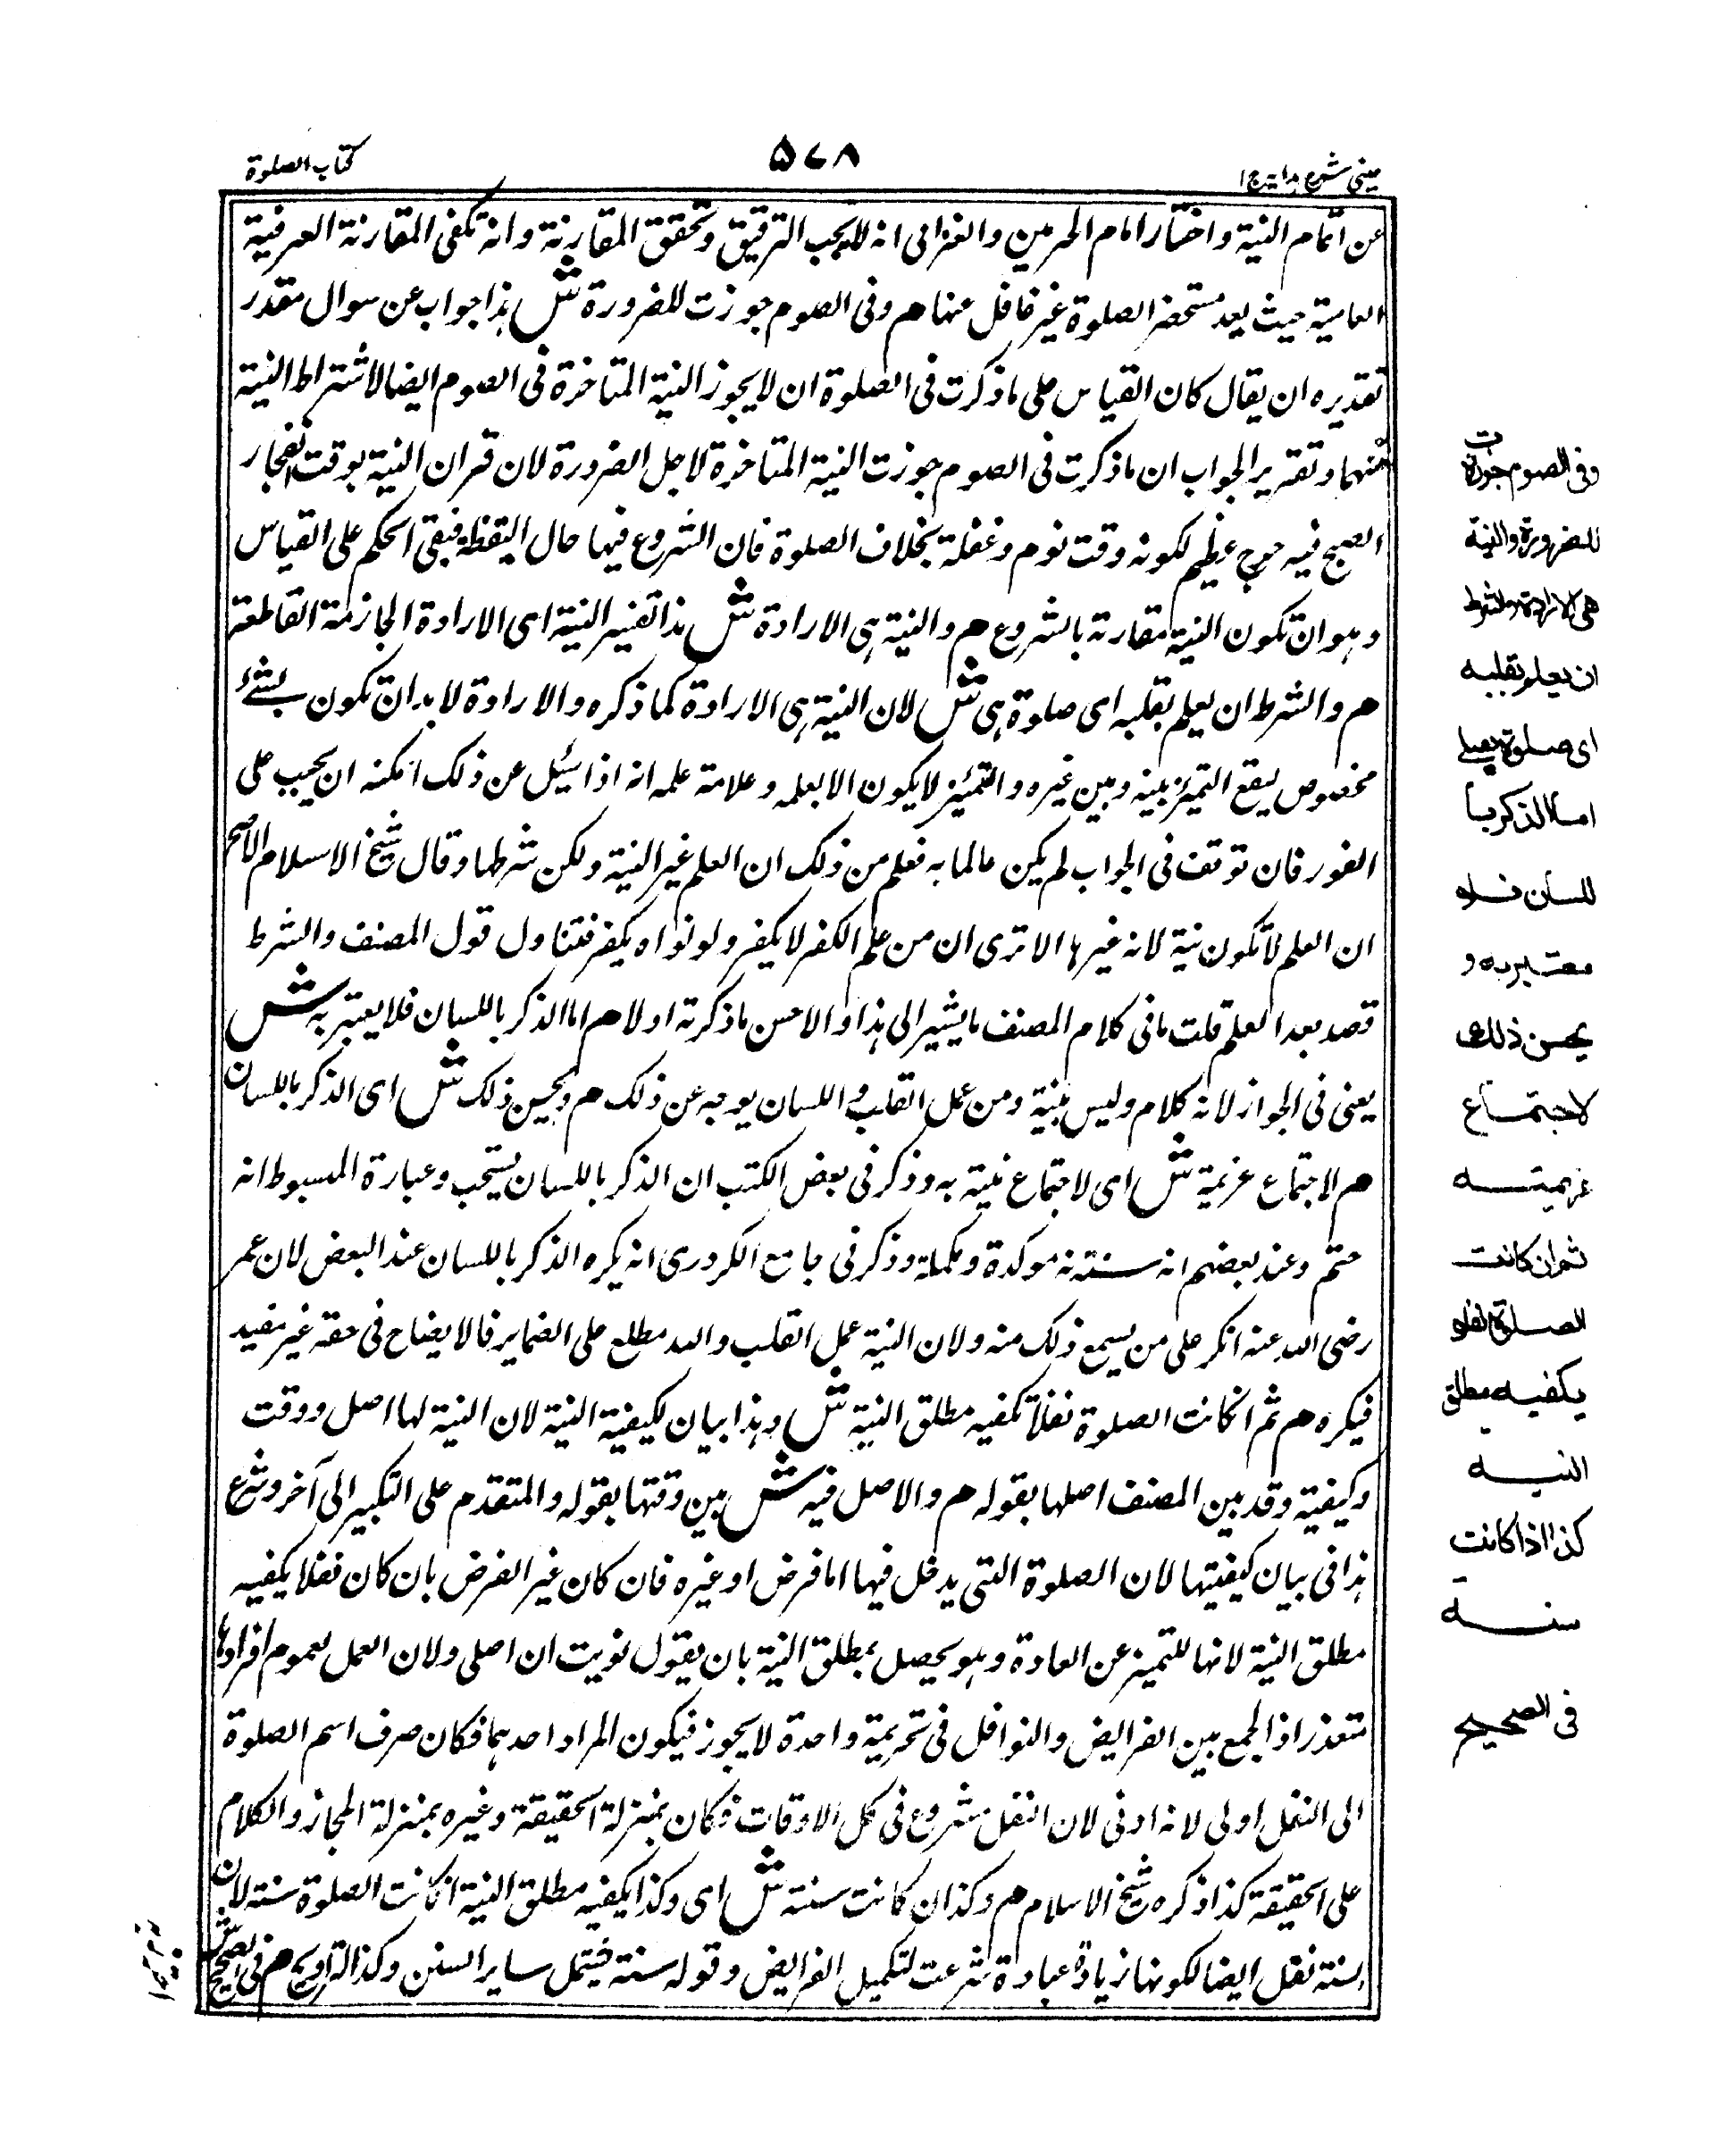 عينى شرح هدايه ج ا
۵۷۸
كتاب الصلوة
عن اتمام النية واختار امام الحرمين والغزالى انه لا يجب الترقيق وتحقق المقارنة وانه تكفى المقارنة العرفية
العامية حيث يعد مستحضر الصلوة غير غافل عنها هم وفى الصوم جوزت للضرورة ش هذا جواب عن سوال مقدر
تقديره ان يقال كان القياس على ما ذكرت فى الصلوة ان لا يجوز النية المتاخرة فى الصوم ايضا لاشتراط النية
منهما وتقرير الجواب ان ما ذكرت فى الصوم جوزت النية المتاخرة لاجل الضرورة لان قران النية بوقت انفجار
الصبح فيه حرج عظيم لكونه وقت نوم وغفلة بخلاف الصلوة فان الشروع فيها حال اليقظة فبقى الحكم على القياس
وهو ان تكون النية مقارنة بالشروع هم والنية هى الارادة ش هذا تفسير النية اى الارادة الجازمة القاطعة
هم والشرط ان يعلم بقلبه اى صلوة هى ش لان النية هى الارادة كما ذكره والارادة لابد ان تكون بشئ
مخصوص ليقع التميز بينه وبين غيره والتميز لا يكون الا بعلمه وعلامة علمه انه اذا سئل عن ذلك امكنه ان يجيب على
الفور فان توقف فى الجواب لم يكن عالما به فعلم من ذلك ان العلم غير النية ولكن شرطها وقال شيخ الاسلام الاصح
ان العلم لا تكون نية لانه غيرها الا ترى ان من علم الكفر لا يكفر ولو نواه يكفر فتناول قول المصنف والشرط
قصد بعد العلم قلت ما فى كلام المصنف ما يشير الى هذا والاحسن ما ذكرته اولا هم اما الذكر باللسان فلا يعتبر به ش
يعنى فى الجواز لانه كلام وليس بنية ومن عمل القلب واللسان يوجه عن ذلك هم ويحسن ذلك ش اى الذكر باللسان
هم لاجتماع عزيمة ش اى لاجتماع نيته به وذكر فى بعض الكتب ان الذكر باللسان يستحب وعبارة المبسوط انه
حتم وعند بعضهم انه سنة موكدة ومكملة وذكر فى جامع الكردرى انه يكره الذكر باللسان عند البعض لان عمر
رضى الله عنه انكر على من يسمع ذلك منه ولان النية عمل القلب والله مطلع على الضماير فالايضاح فى حقه غير مفيد
فيكره هم ثم ان كانت الصلوة نفلا تكفيه مطلق النية ش وهذا بيان لكيفية النية لان النية لها اصل ووقت
وكيفية وقد بين المصنف اصلها بقوله هم والاصل فيه ش بين وقتها بقوله والمتقدم على التكبير الى آخر وشرع
هذا فى بيان كيفيتها لان الصلوة التى يدخل فيها اما فرض او غيره فان كان غير الفرض بان كان نفلا يكفيه
مطلق النية لانها للتميز عن العادة وهو يحصل بمطلق النية بان يقول نويت ان اصلى ولان العمل بعموم افرادها
متعذر اذ الجمع بين الفرايض والنوافل فى تحريمة واحدة لا يجوز فيكون المراد احدهما فكان صرف اسم الصلوة
الى النفل اولى لانه ادنى لان النفل مشروع فى كل الاوقات فكان بمنزلة الحقيقة وغيره بمنزلة المجاز والكلام
على الحقيقة كذا ذكره شيخ الاسلام هم وكذا ان كانت سنة ش اى وكذا يكفيه مطلق النية ان كانت الصلوة سنة لان
السنة نفل ايضا لكونها زيادة عبادة شرعت لتكميل الفرايض وقوله سنة فيتمل ساير السنن وكذا التراويح هم فى الصحيح ش
وفى الصوم جوزت
للضرورة والنية
هى الارادة والشرط
ان يعلم بقلبه
اى صلوة يصلى
اما الذكر با
للسان فلا
معتبر به و
يحسن ذلك
لاجتماع
عزيمته
ثم ان كانت
الصلوة نفلا
يكفيه مطلق
النية
كذا اذا كانت
سنة
فى الصحيح